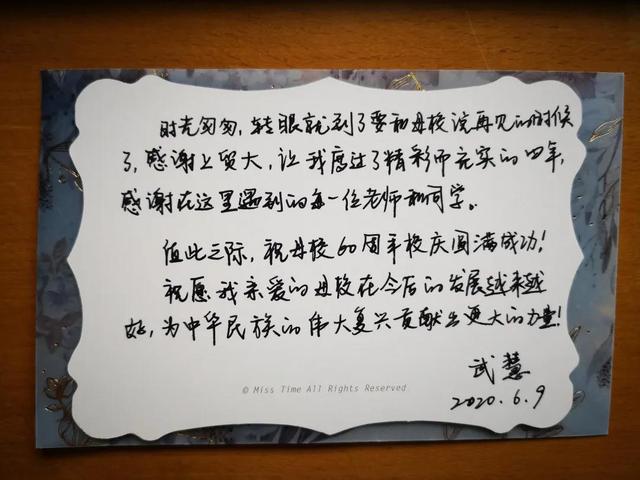 时光匆匆，转眼就到了要和母校说再见的时候
了，感谢上贸大，让我度过了精彩而充实的四年，
感谢在这里遇到的每一位老师和同学。
值此之际，祝母校60周年校庆圆满成功！
祝愿我亲爱的母校在今后的发展越来越
好，为中华民族的伟大复兴贡献出更大的力量！
© Miss Time All Rights Reserved.
武慧
2020.6.9